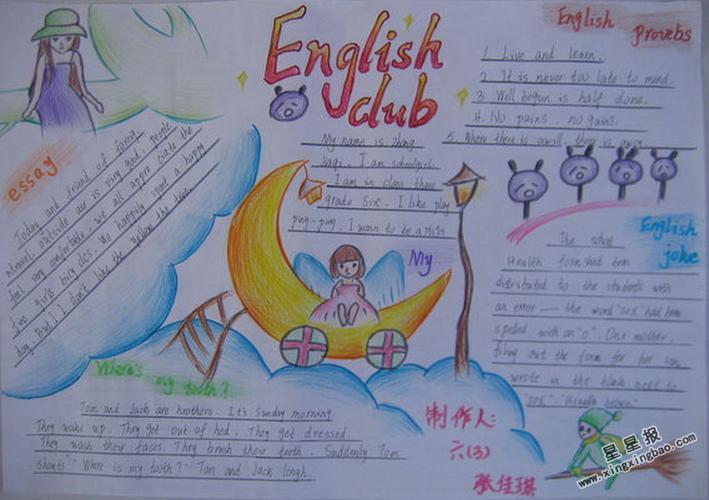 English
club
English Proverbs
1. Live and learn.
2. It is never too late to mend.
3. Well begun is half done.
4. No pains, no gains.
5. Where there is a will, there is a way.
essay
Today and friend of
travel, outside air is very good, people
feel very comfortable, we all the
We happily spent a happy
day. But, I don't like the the
My name is Zhang
Jiaqi. I am schoolgirl.
I am in class three
grade Six. I like play
ping-pong. I wann to be a
My
English
joke
The school
Health form had been
distributed to the students with
an error — the word "sex" had been
spelled with an "o". One mother,
filling out the form for her son,
wrote in the blank next to
"sox": "Usually brown".
Where's
my tooth?
Tom and Jack are brothers. It's Sunday morning.
They wake up. They get out of bed. They get dressed.
They wash their faces. They brush their teeth. Suddenly Tom
shouts "Where is my tooth?" Tom and Jack laugh.
制作人:
六(3)
张佳琪
星星报
www.xingxingbao.com